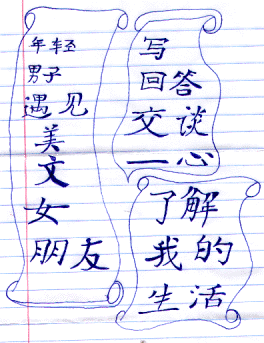 年轻
男子
遇见
美
文
女
朋友
写
回答
交谈
一心
了解
我的
生活